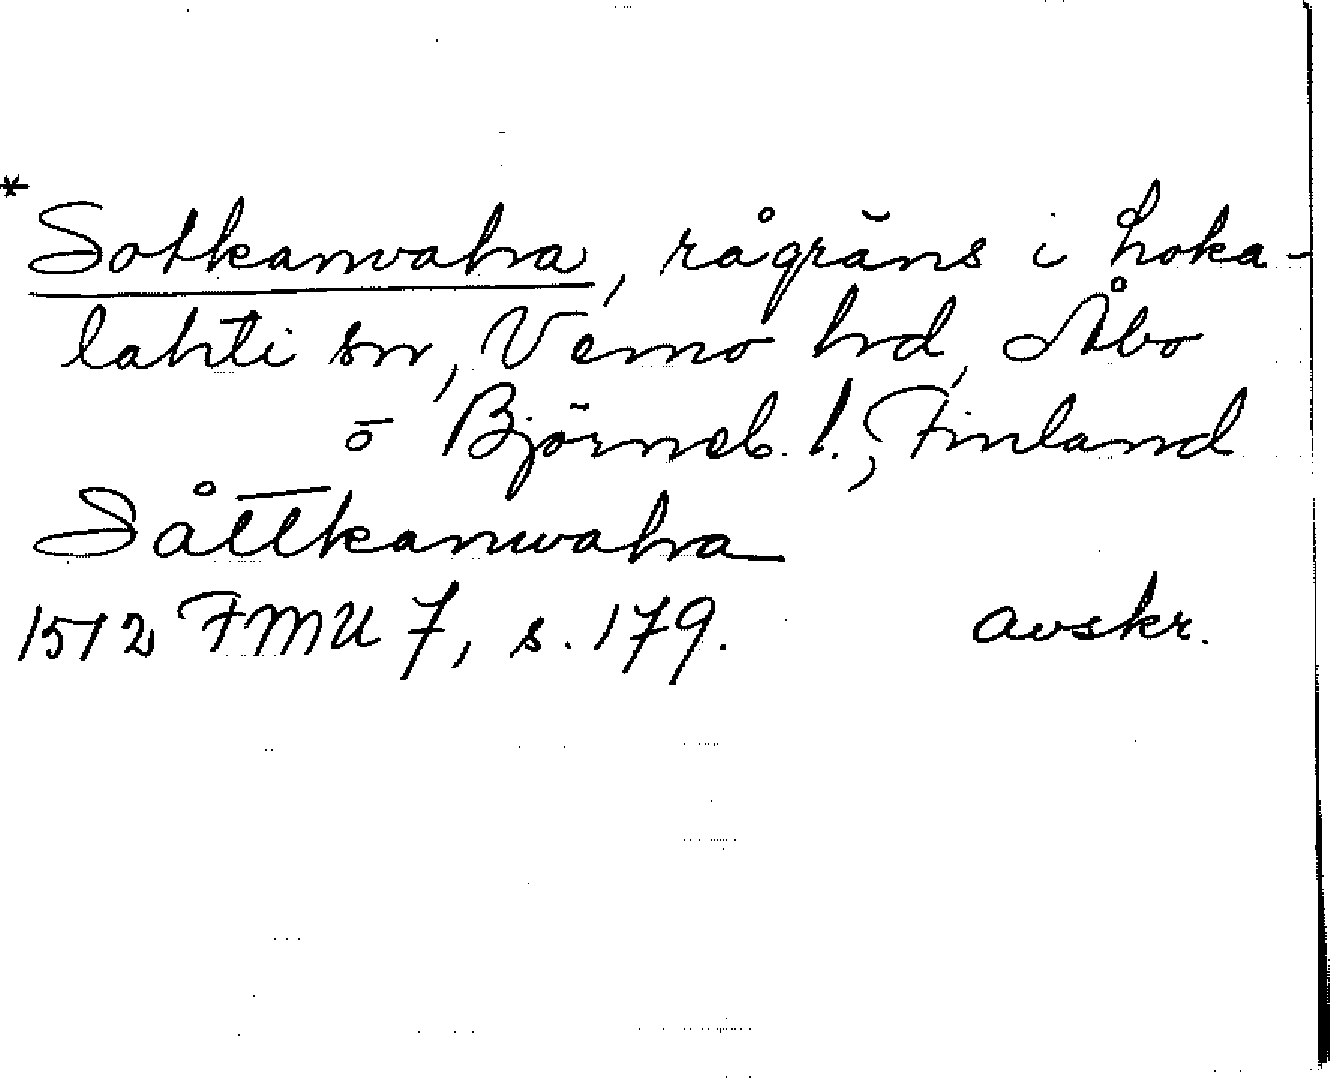 *
Sotkanvaha, rågräns i Loka-
lahti sn, Vemo hd, Åbo
o Björneb. l., Finland
Såttkanwaha
1512 FMU 7, s. 179. avskr.